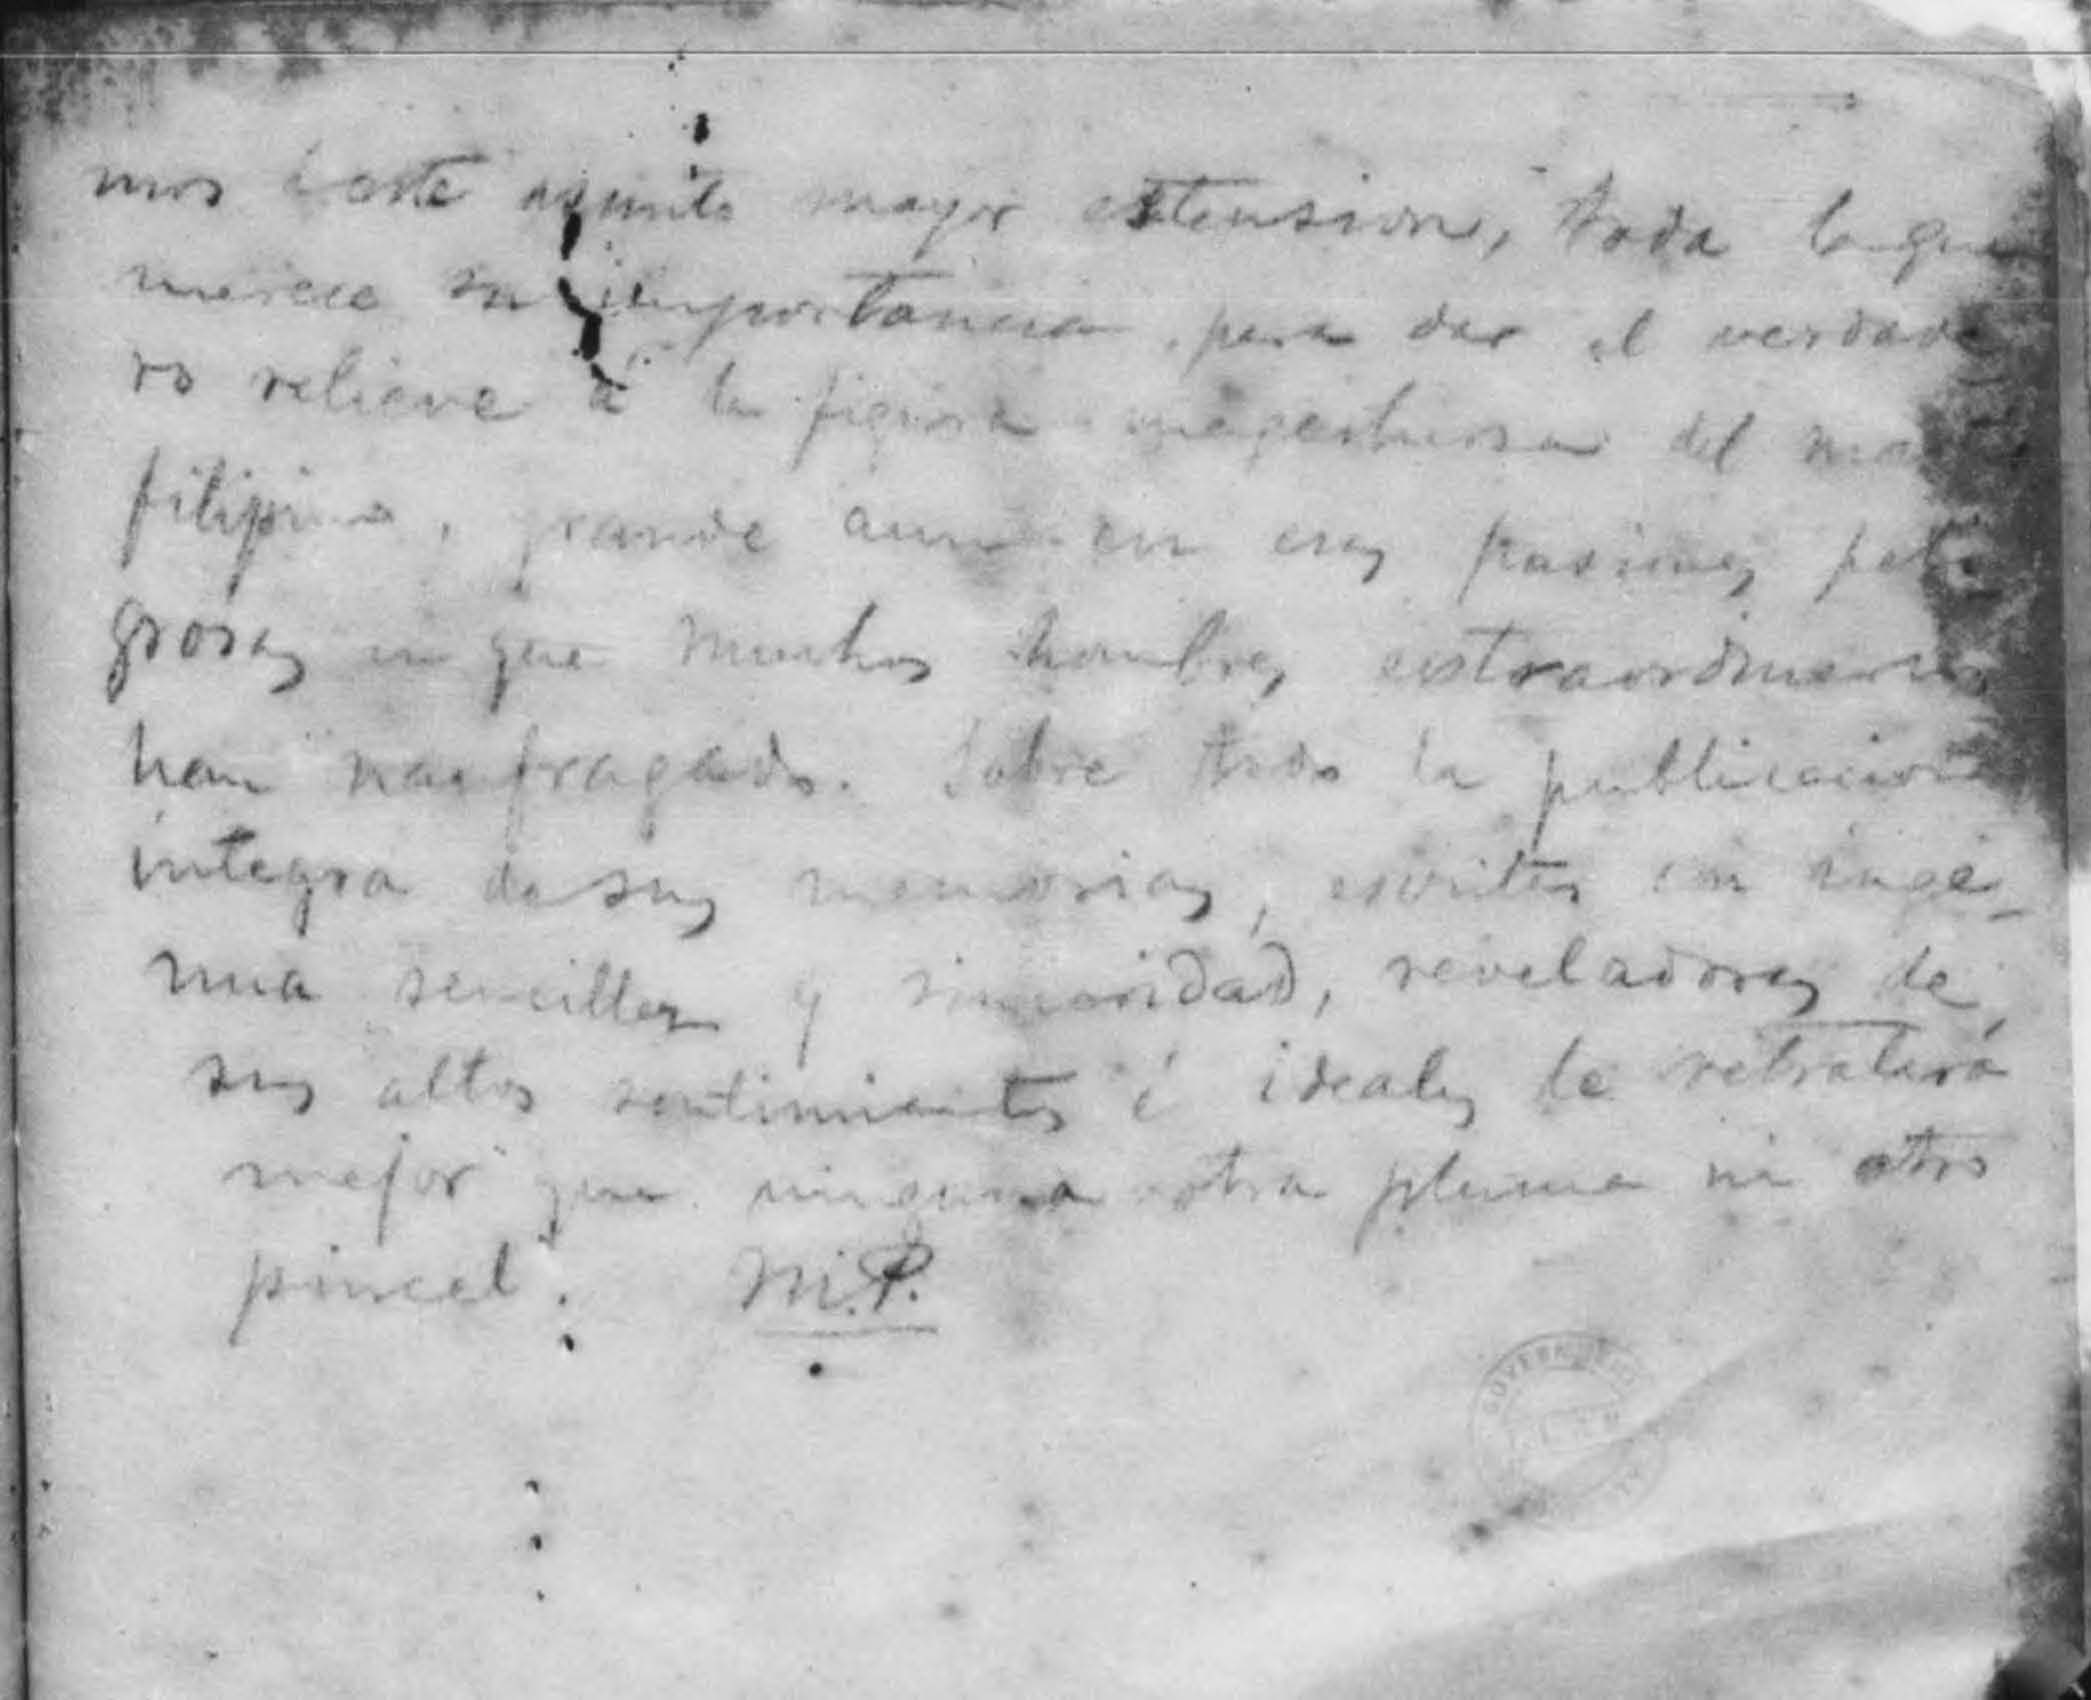 mos á este asunto mayor estension, toda la que
merece su importancia, para dar el verdade
ro relieve á la figura magestuosa del
filipino, grande aun en esas pasiones peli
grosas en que muchos hombres extraordinarios
han naufragado. Sobre todo la publicacion
integra de sus memorias, escritas con inge-
nua sencillez y sinceridad, reveladoras de
sus altos sentimientos é ideales le retratará
mejor que ninguna otra pluma ni otro
pincel. M.P.